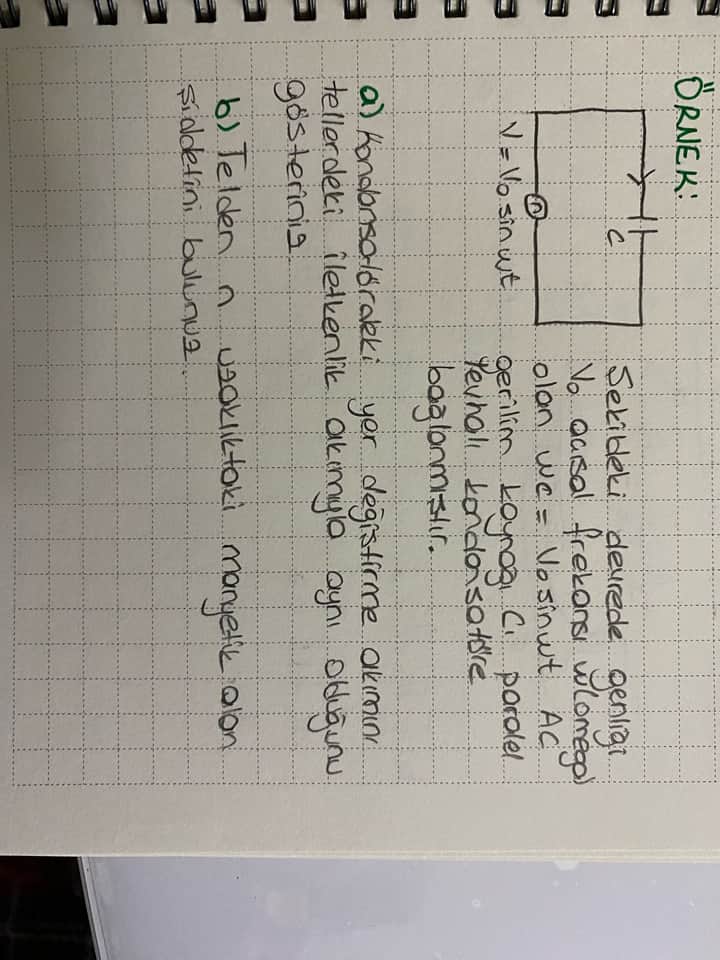 ÖRNEK:
C
V = V₀ sin wt
Şekildeki devrede genliği
V₀ açısal frekansı w(omega)
olan wc = V₀ sinwt AC
gerilim kaynağı C₁ paralel
levhalı kondansatöre
bağlanmıştır.
a) Kondansatördeki yer değiştirme akımını
tellerdeki iletkenlik akımıyla aynı olduğunu
gösteriniz
b) Telden r uzaklıktaki manyetik alan
şiddetini bulunuz.